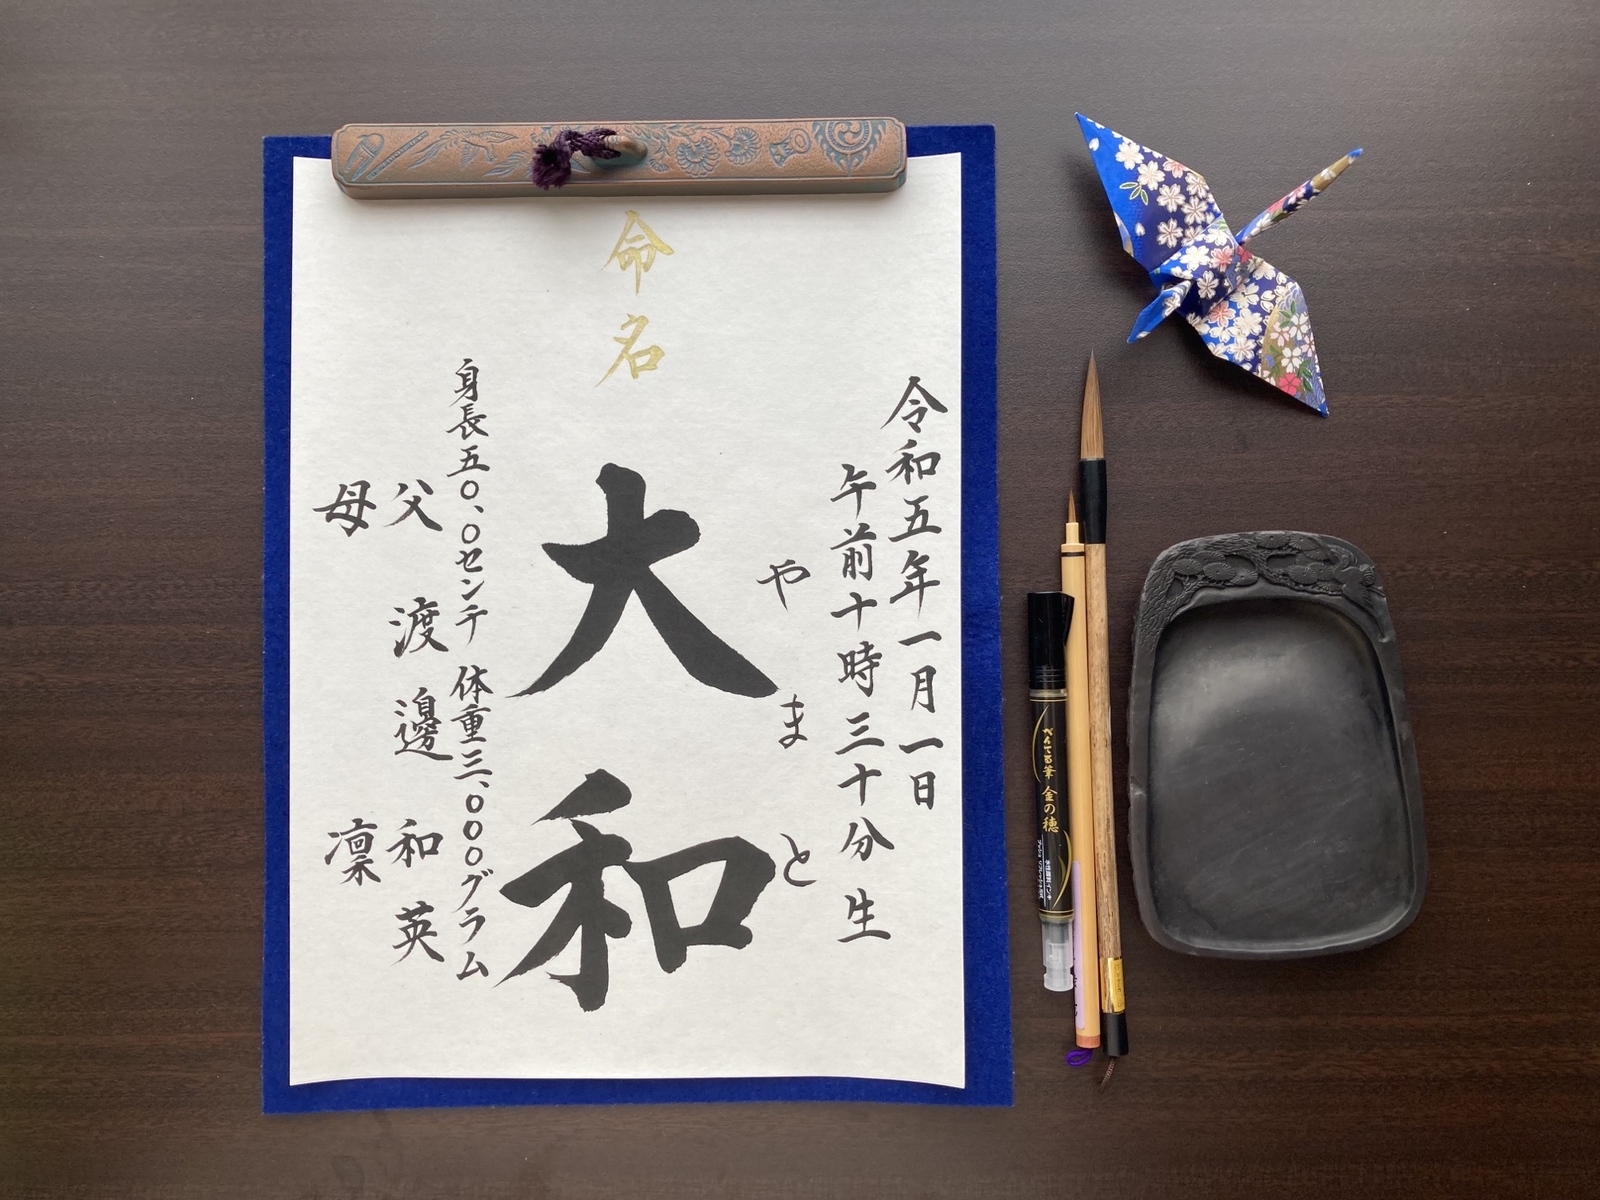 命名
令和五年一月一日
午前十時三十分生
やまと
大和
身長五〇、〇センチ 体重三、〇〇〇グラム
父 渡邊 和英
母 凜
ぺんてる筆 金の穂